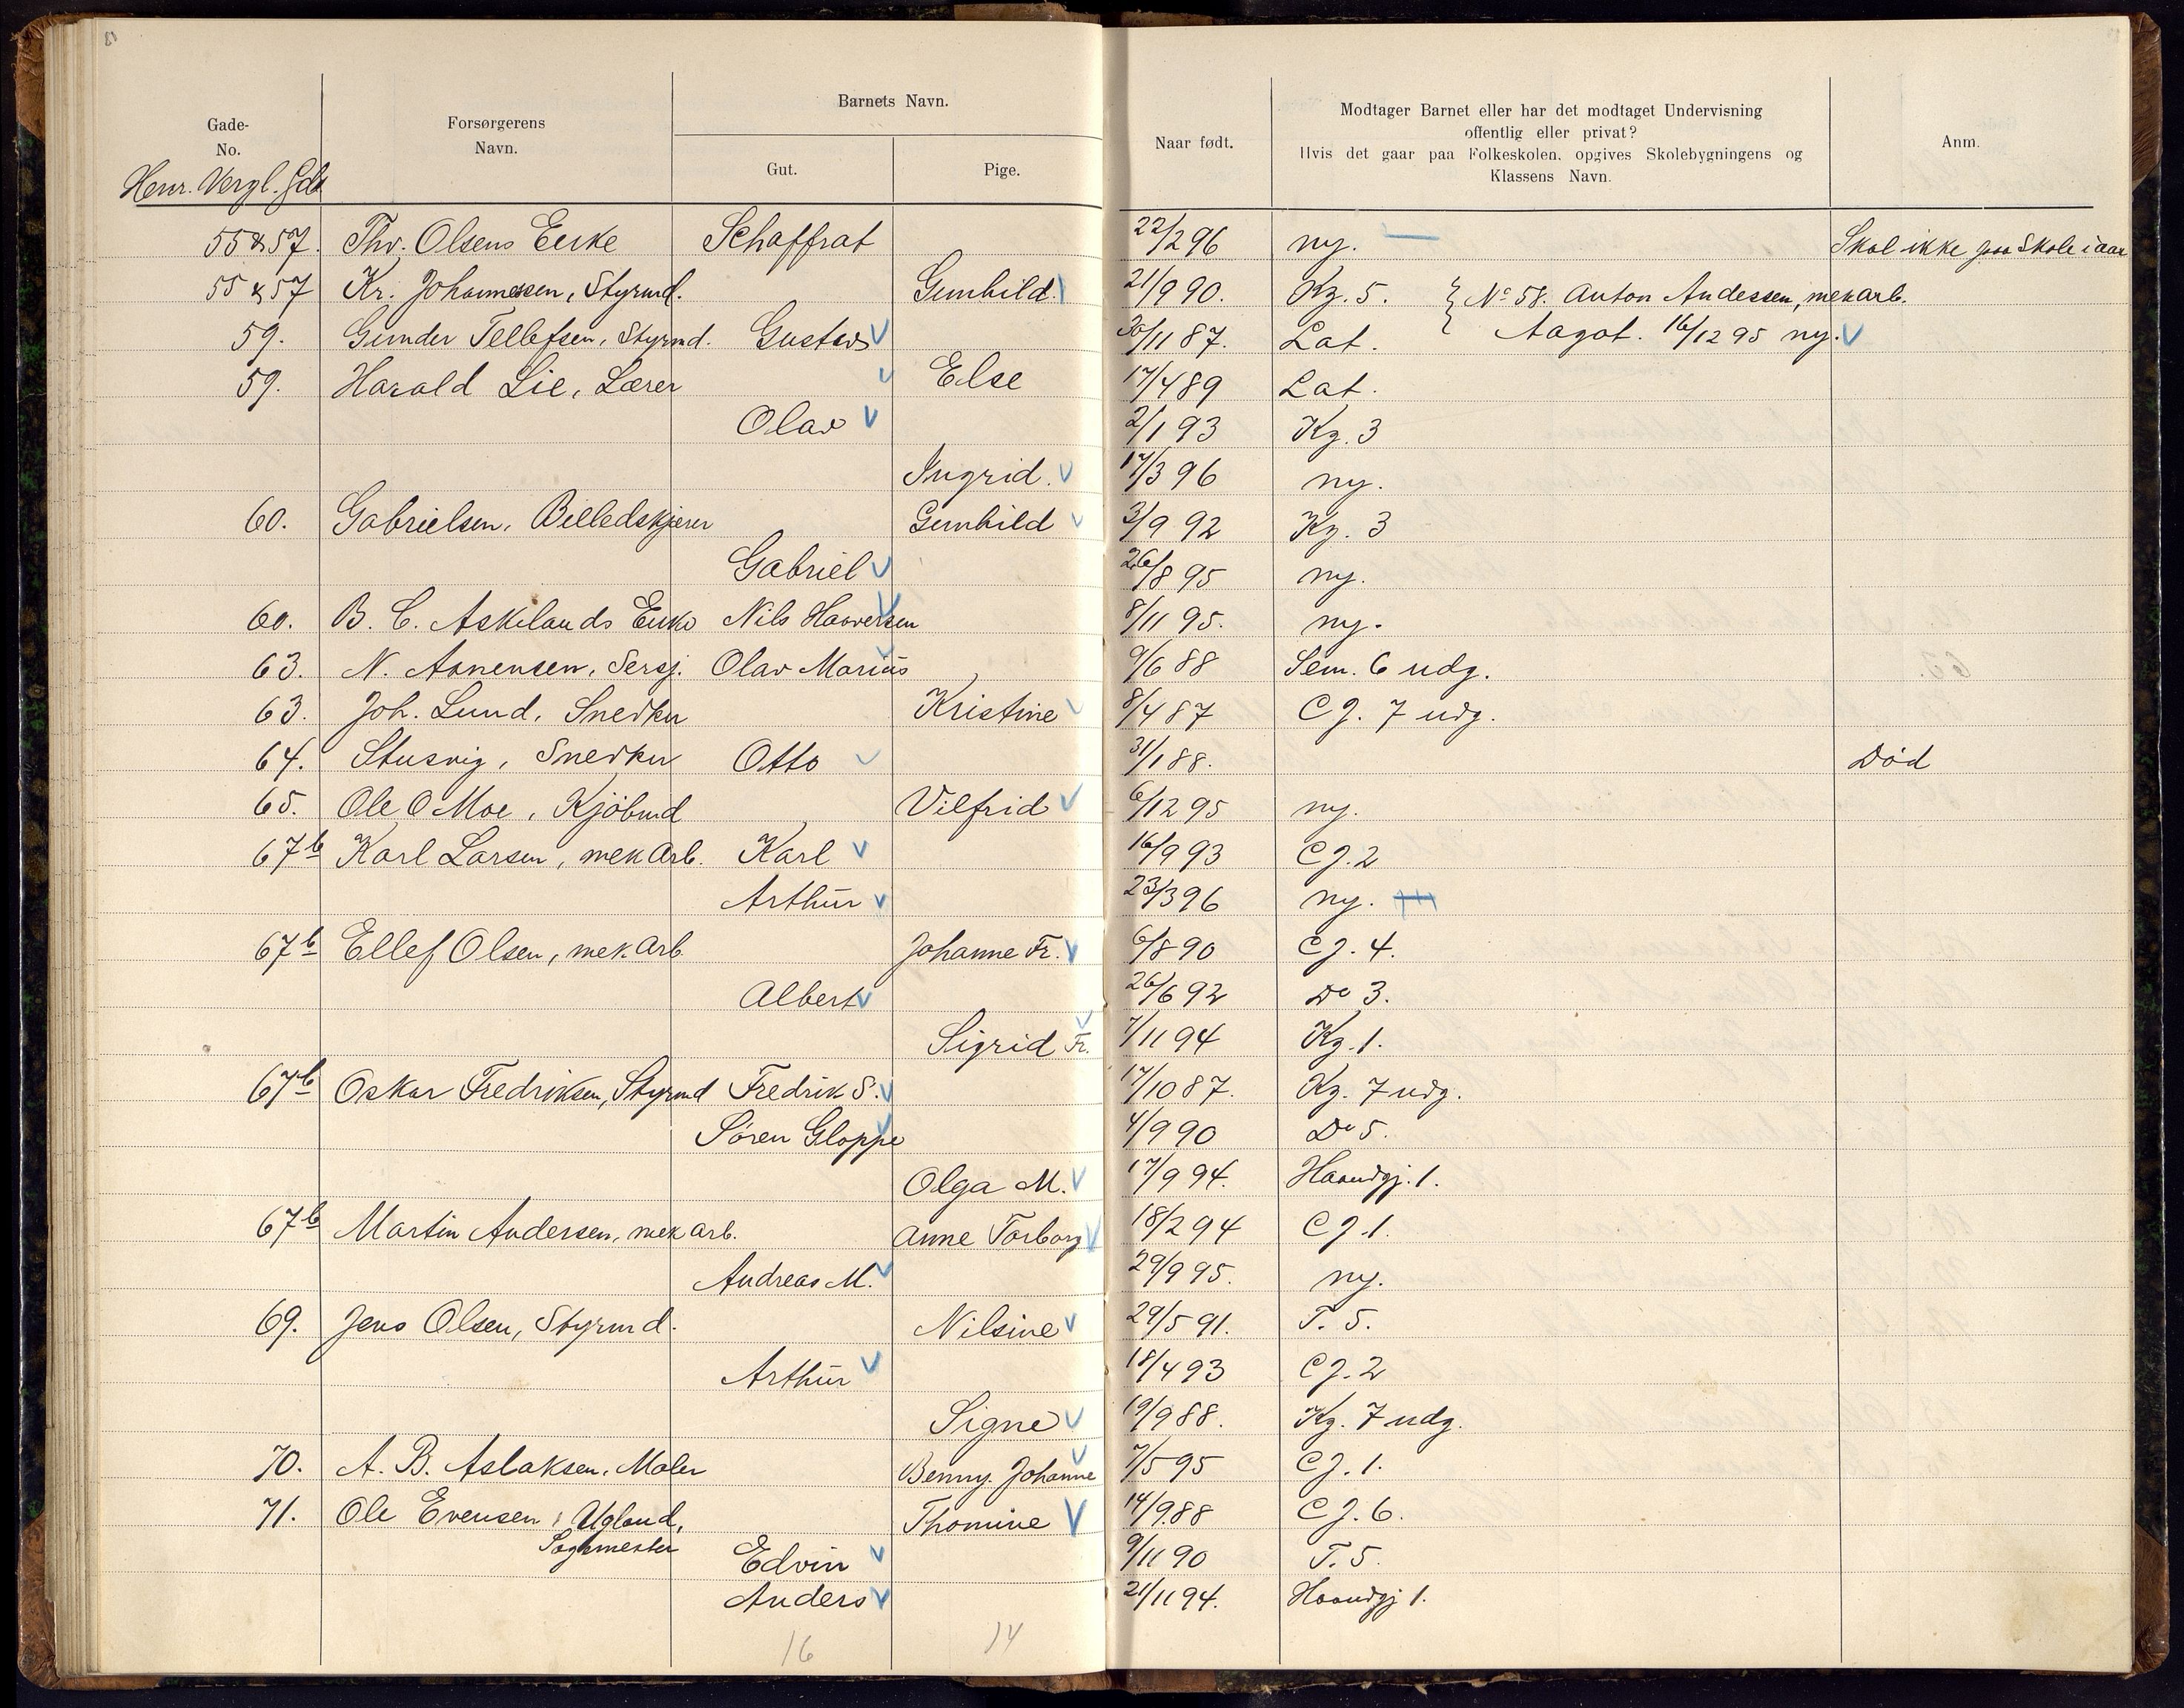 Gade-
No.
Forsørgerens
Navn.
Barnets Navn.
Gut.
Pige.
Naar født.
Modtager Barnet eller har det modtaget Undervisning
offentlig eller privat?
Hvis det gaar paa Folkeskolen, opgives Skolebygningens og
Klassens Navn.
Anm.
Henr. Vergl. Gde
55 & 57. Thv. Olsens Enke Schaffrat 22/2 96 ny. Skal ikke paa Skole i aar
55 & 57 Kr. Johannessen, Styrmd. Gunhild. 21/9 90. Kg. 5. } No 58. Anton Andessen, mek arb.
59. Gunder Tellefsen, Styrmd. Gustav 30/11 87. Lat. Aagot. 16/12 95 ny.
59. Harald Lie, Lærer Else 17/4 89 Lat.
Olav 2/1 93 Kg. 3
Ingrid. 17/3 96 ny.
60. Gabrielsen, Billedskjærer Gunhild 3/9 92 Kg. 3
Gabriel 26/8 95 ny.
60. B. C. Askilands Enke Nils Haaversen 8/11 95. ny.
63. N. Aanensen, Sersj. Olav Marius 9/6 88 Sem. 6 udg.
63. Joh. Lund, Snedker Kristine 8/4 87 CJ. 7 udg.
64. Stusvig, Snedker Otto 31/1 88. Død
65. Ole O Moe, Kjöbmd Vilfrid 6/12 95 ny.
67b Karl Larsen, mek Arb. Karl 16/9 93 CJ. 2
Arthur 23/3 96 ny.
67b Ellef Olsen, mek. Arb. Johanne Fr. 6/8 90 CJ. 4.
Albert 26/6 92 Do 3.
Sigrid Fr. 7/11 94 Kg. 1.
67b Oskar Fredriksen, Styrmd Fredrik S. 17/10 87. Kg. 7 udg.
Søren Gloppe 4/9 90 Do 5.
Olga M. 17/9 94. Haandgj. 1.
67b Martin Andersen, mek arb. Anne Torborg 18/2 94 CJ. 1.
Andreas M. 29/9 95. ny.
69. Jens Olsen, Styrmd. Nilsine 29/5 91. T. 5.
Arthur 18/4 93 CJ. 2
Signe 19/9 88. Kg. 7 udg.
70. A. B. Aslaksen, Maler Benny Johanne 7/5 95 CJ. 1.
71. Ole Evensen Ugland, Thomine 14/9 88 CJ. 6.
Sagmester Edvin 9/11 90 T. 5.
Anders 21/11 94. Haandgj 1.
16 14